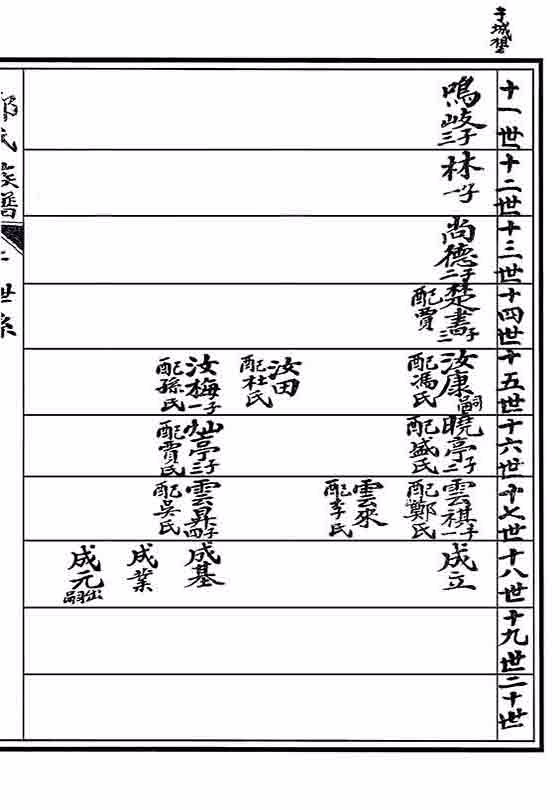 于城碧
十一世
鳴岐三子
十二世
林一子
十三世
尚德二子
十四世
楚書三子
配賈
十五世
汝康嗣
配馮氏
汝田
配杜氏
汝梅一子
配孫氏
十六世
曉亭二子
配盛氏
灿亭三子
配賈氏
十七世
雲祺一子
配鄭氏
雲來
配李氏
雲昇四子
配吳氏
十八世
成立
成基
成業
成元出嗣
十九世
二十世
氏族譜
世系